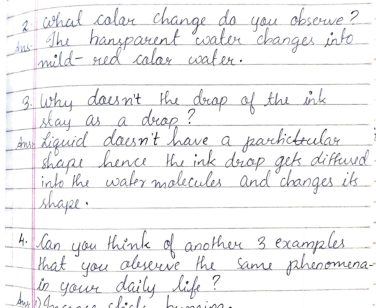 2. What color change do you observe?
Ans:- The transparent water changes into
mild-red color water.
3. Why doesn't the drop of the ink
stay as a drop?
Ans:- Liquid doesn't have a particular
shape hence the ink drop gets diffused
into the water molecules and changes its
shape.
4. Can you think of another 3 examples
that you observe the same phenomena-
in your daily life?
Ans:- i) Incense stick burning.